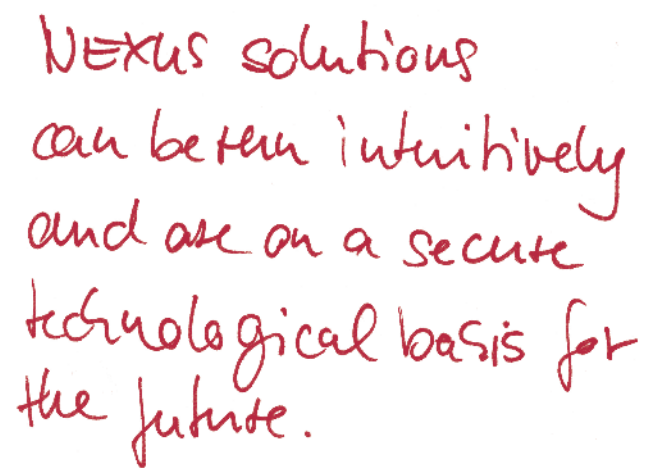 NEXUS solutions
can be run intuitively
and are on a secure
technological basis for
the future.